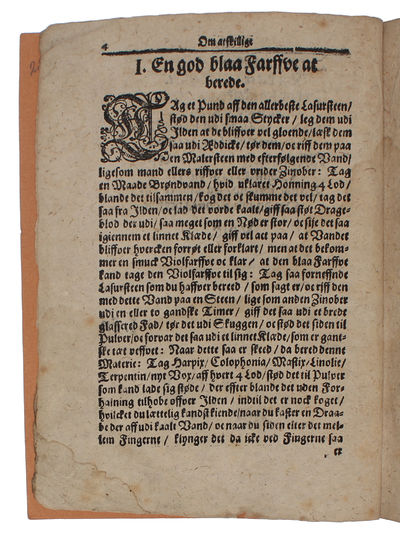 4
Om atskillige
I. En god blaa Farffve at
berede.
TAg et Pund aff den allerbeste Lasursteen/
stød den udi smaa Stycker / leg dem udi
Ilden at de bliffver vel gloende/læsk dem
saa udi Æddicke/ tør dem/ oc riff dem paa
en Malersteen med efterfølgende Vand/
ligesom mand ellers riffver eller vrider Zinober: Tag
en Maade Brøndvand / hvid uklaret Honning 4 Lod/
blande det tilsammen/ kog det oc skumme det vel/ tag det
saa fra Ilden/ oc lad det vorde kaalt/giff saa støt Drage-
blod der udi/ saa meget som en Nød er stor/ oc sije det saa
igiennem et linnet Klæde/ giff vel act paa / at Vandet
bliffver hvercken forrøt eller forklart/ men at det bekom-
mer en smuck Violfarffve oc klar/ at den blaa Farffve
kand tage den Violfarffve til sig: Tag saa forneffnde
Lasursteen som du haffver bereed / som sagt er/ oc riff den
med dette Vand paa en Steen / lige som anden Zinober
udi en eller to gandske Timer / giff det saa udi et brede
glassered Fad/ tør det udi Skuggen/ oc stød det siden til
Pulver/oc forvar det saa udi et linnet Klæde/som er gant-
ske tæt veffvet: Naar dette saa er skeed / da bered denne
Materie: Tag Harpix/ Colophonia/ Mastix/ Linolie/
Terpentin/ nyt Vox/ aff hvert 4 Lod/ stød det til Pulver
som kand lade sig støde / der effter blande det uden For-
haining tilhobe offver Ilden / indtil det er nock koget/
hvilcket du lættelig kandst kiende/naar du kaster en Draa-
be der aff udi kaalt Vand/ oc naar du siden elter det mel-
lem Fingerne / klynger det da icke ved Fingerne saa
er